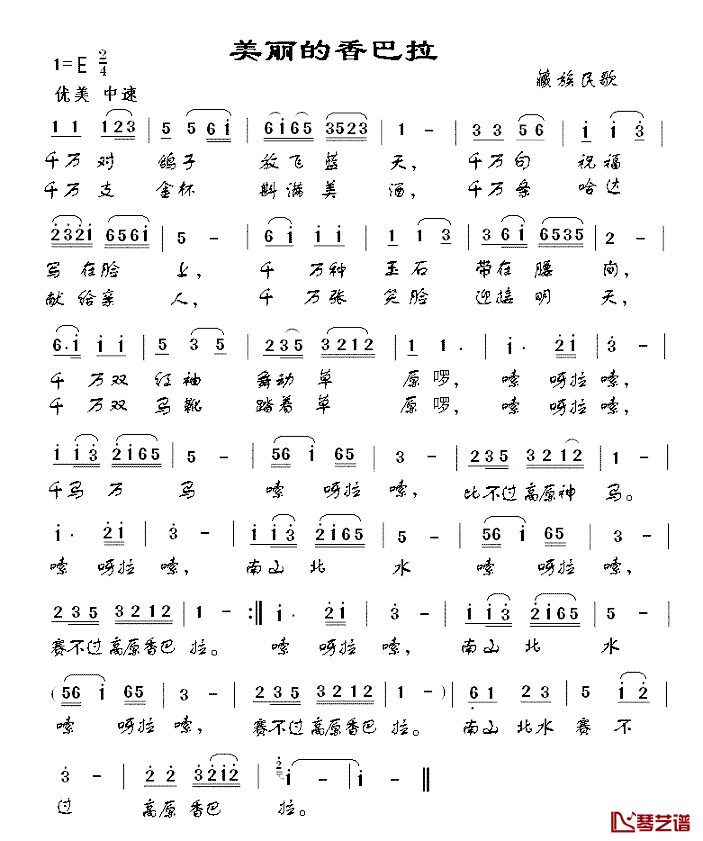 美丽的香巴拉
1=E 2/4
藏族民歌
优美 中速
1 1 1 2 3 | 5 5 6 i | 6 i 6 5 3 5 2 3 | 1 - | 3 3 5 6 | i i 3 |
千万对 鸽子 放飞蓝 天， 千万句 祝福
千万支 金杯 斟满美 酒， 千万条 哈达
2 3 2 i 6 5 6 i | 5 - | 6 i i i | i 1 3 | 3 6 i 6 5 3 5 | 2 - |
写在脸 上， 千 万种 玉石 带在腰 间，
献给亲 人， 千 万张 笑脸 迎接明 天，
6 . i i i | 5 3 5 | 2 3 5 3 2 1 2 | 1 1 . | i . 2 i | 3 - |
千 万双 红袖 舞动草 原啰， 嗦 呀拉嗦，
千 万双 马靴 踏着草 原啰， 嗦 呀拉嗦，
i i 3 2 i 6 5 | 5 - | 5 6 i 6 5 | 3 - | 2 3 5 3 2 1 2 | 1 - |
千马万 马 嗦 呀拉嗦， 比不过高原神马。
i . 2 i | 3 - | i i 3 2 i 6 5 | 5 - | 5 6 i 6 5 | 3 - |
嗦 呀拉嗦， 南山北 水 嗦 呀拉嗦，
2 3 5 3 2 1 2 | 1 - :‖ i . 2 i | 3 - | i i 3 2 i 6 5 | 5 - |
赛不过高原香巴 拉。 嗦 呀拉嗦， 南山北 水
( 5 6 i 6 5 | 3 - | 2 3 5 3 2 1 2 | 1 - ) | 6 1 2 3 | 5 i 2 |
嗦 呀拉嗦， 赛不过高原香巴 拉。 南山北水赛 不
3 - | 2 2 3 2 i 2 | 2 i - | i - ‖
过 高原香巴 拉。
琴艺谱